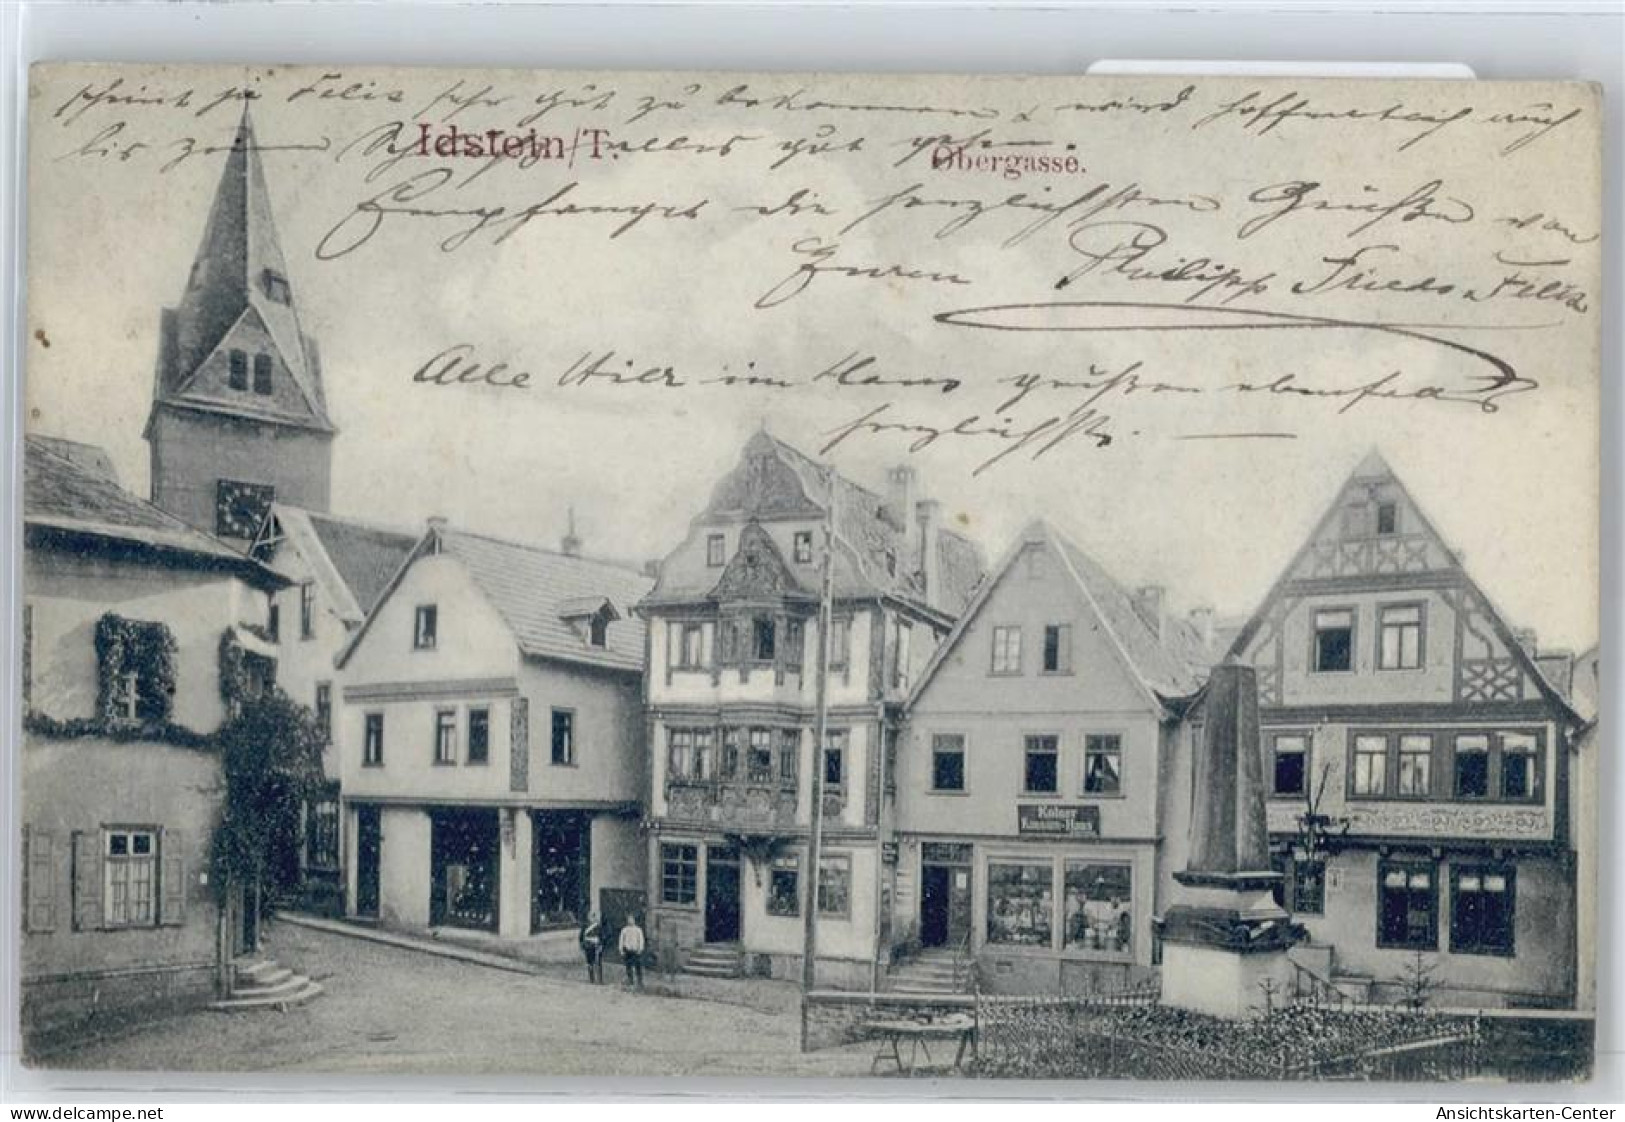 scheint ja Felix sehr gut zu bekommen & wird hoffentlich auch
bis zum alles gut gehen
Idstein/T. Obergasse.
Empfanget die herzlichsten Grüße von
Euren Philipp Frieda u. Felix
Alle Hier im Haus grüßen ebenfalls
herzlichst.
Kölner
Konsum-Haus
www.delcampe.net
Ansichtskarten-Center